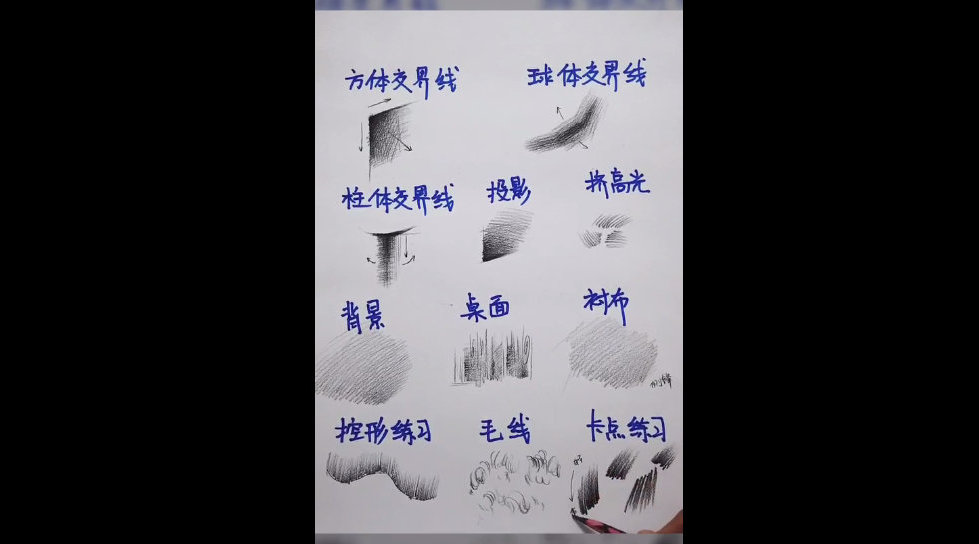 方体交界线 球体交界线
柱体交界线 投影 挤高光
背景 桌面 衬布
侧锋
控形练习 毛线 卡点练习